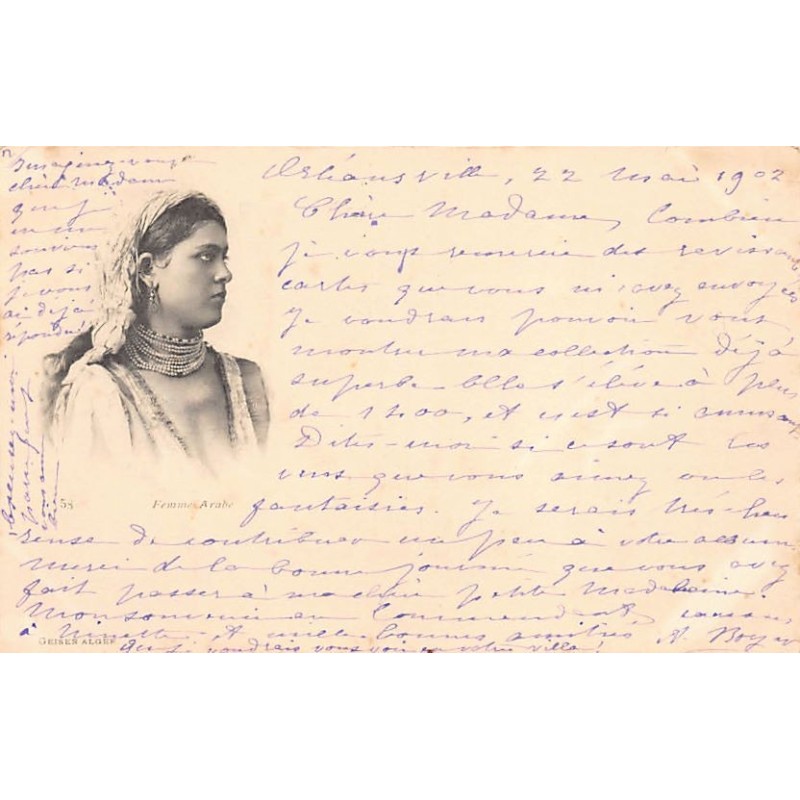 Orléansville, 22 mai 1902
Chère Madame, Combien
je vous remercie des ravissantes
cartes que vous m'avez envoyées
Je voudrais pouvoir vous
montrer ma collection déjà
superbe Elle s'élève à plus
de 1400, et c'est si amusant
Dites-moi si ce sont les
vues que vous aimez ou les
fantaisies. Je serais très heu
reuse de contribuer un peu à votre album
merci de la bonne journée que vous avez
fait passer à ma chère petite Madeleine.
Mon souvenir au Commandant,
à Ninette et mille bonnes amitiés A. Boyer
que je voudrais vous voir en votre ville!
Imaginez-vous
chère Madame
que je
ne me
souviens
pas si
je vous
ai déjà
répondu!
Excusez-moi
58
Femme Arabe
GEISER ALGER